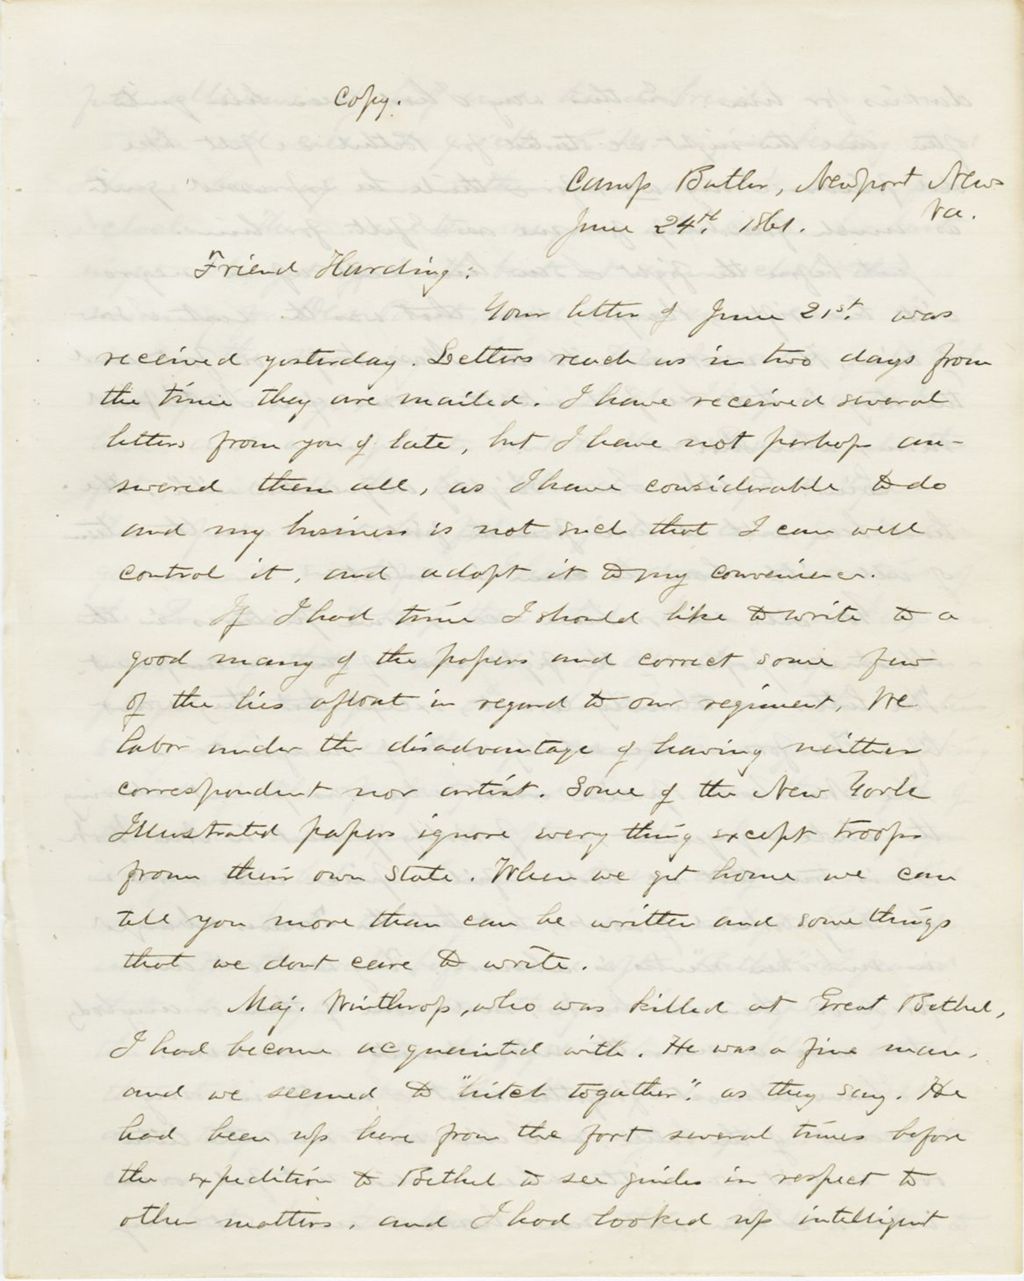 Copy.
Camp Butler, Newport News
Va.
June 24th. 1861.
Friend Harding:
Your letter of June 21st. was
received yesterday. Letters reach us in two days from
the time they are mailed. I have received several
letters from you of late, but I have not perhaps an-
swered them all, as I have considerable to do
and my business is not such that I can well
control it, and adapt it to my convenience.
If I had time I should like to write to a
good many of the papers and correct some few
of the lies afloat in regard to our regiment. We
labor under the disadvantage of having neither
correspondent nor artist. Some of the New York
Illustrated papers ignore every thing except troops
from their own State. When we get home we can
tell you more than can be written and some things
that we dont care to write.
Maj. Winthrop, who was killed at Great Bethel,
I had become acquainted with. He was a fine man,
and we seemed to "hitch together". as they say. He
had been up here from the fort several times before
the expedition to Bethel to see guides in respect to
other matters, and I had looked up intelligent